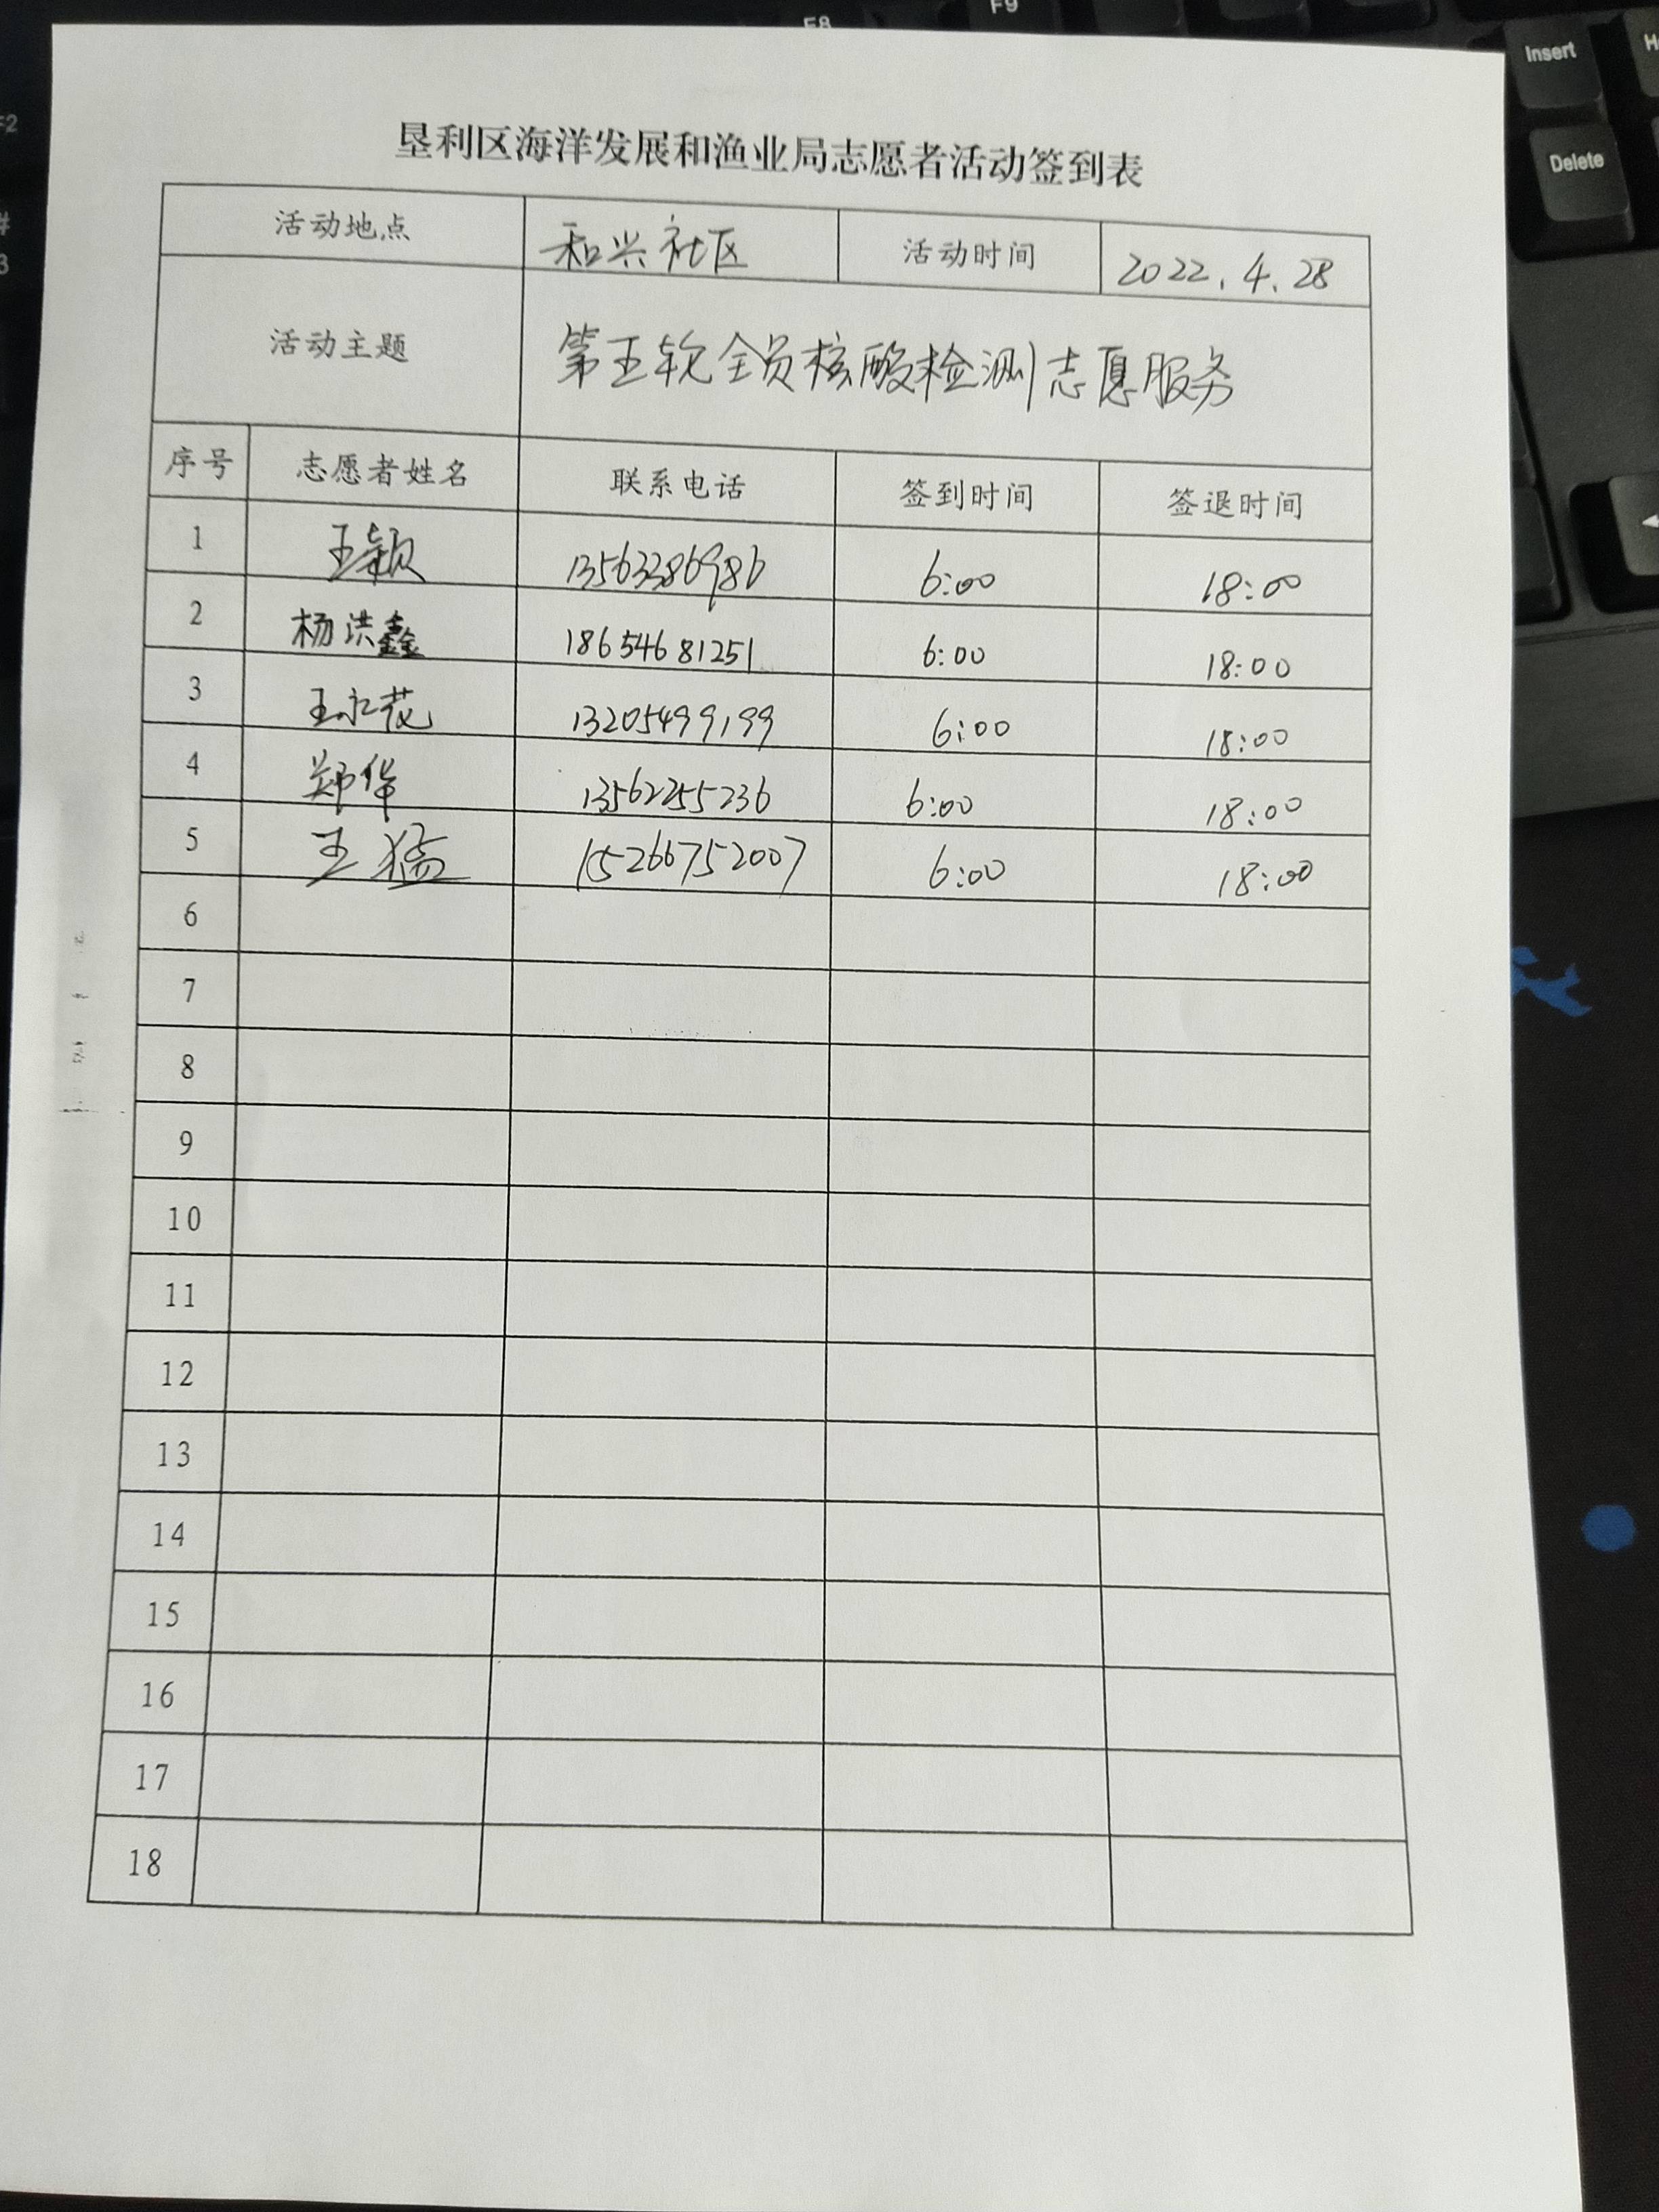 垦利区海洋发展和渔业局志愿者活动签到表
活动地点 和兴社区 活动时间 2022.4.28
活动主题 第五轮全员核酸检测志愿服务
序号 志愿者姓名 联系电话 签到时间 签退时间
1 王颖 13563386986 6:00 18:00
2 杨洪鑫 18654681251 6:00 18:00
3 王永花 13205499199 6:00 18:00
4 郑华 13562255236 6:00 18:00
5 王猛 15266752007 6:00 18:00
6
7
8
9
10
11
12
13
14
15
16
17
18
F8
F9
Insert
Delete
F2
#
3